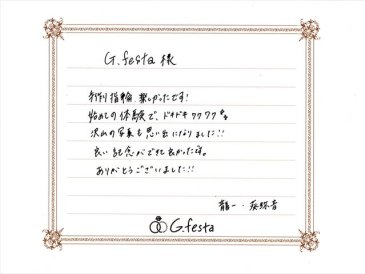 G.festa 様
手作り指輪、楽しかったです!
始めての体験で、ドキドキワクワク
沢山の写真も思い出になりました!!
良い記念ができて良かったです。
ありがとうございました!!
龍一・
G.festa